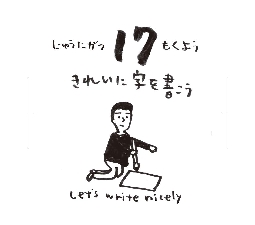 じゅうにがつ 17 もくよう
きれいに字を書こう
Let's write nicely